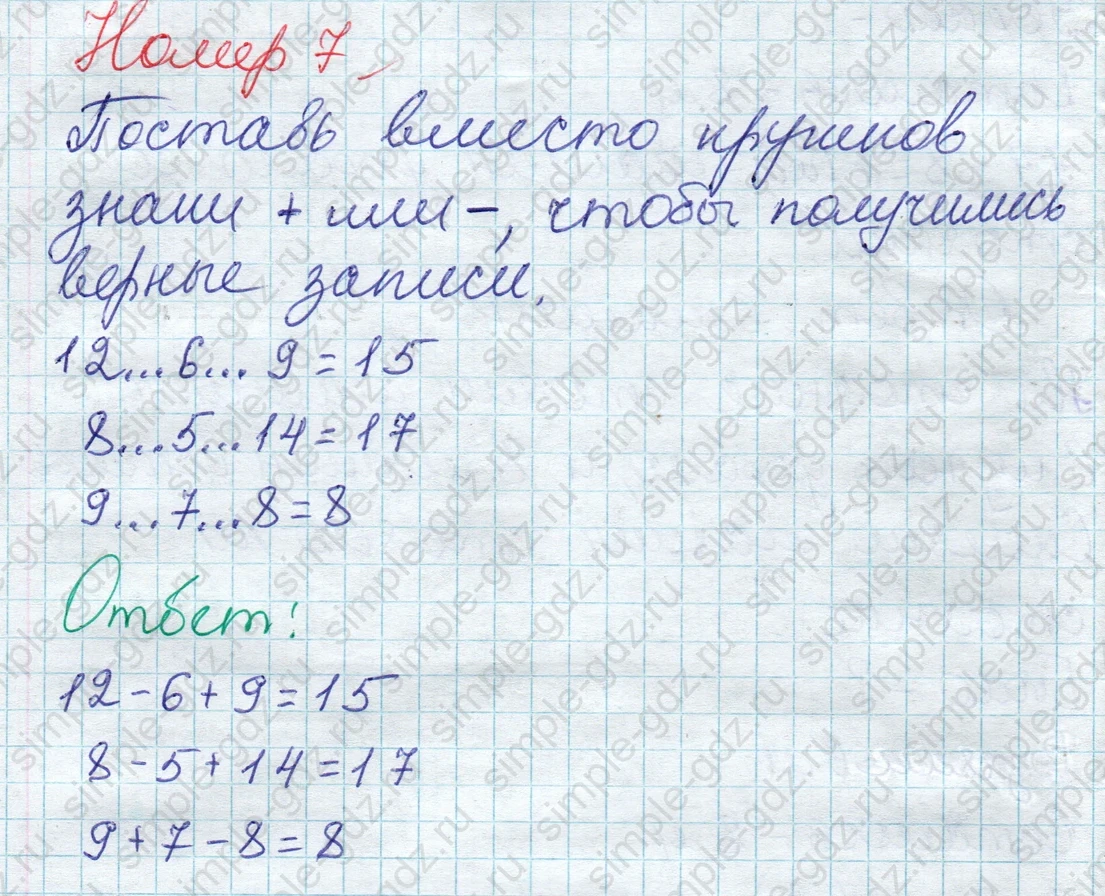 Номер 7
Поставь вместо кружков
знаки + или -, чтобы получились
верные записи.
12...6... 9 = 15
8...5...14 = 17
9...7...8 = 8
Ответ:
12 - 6 + 9 = 15
8 - 5 + 14 = 17
9 + 7 - 8 = 8
simple-gdz.ru